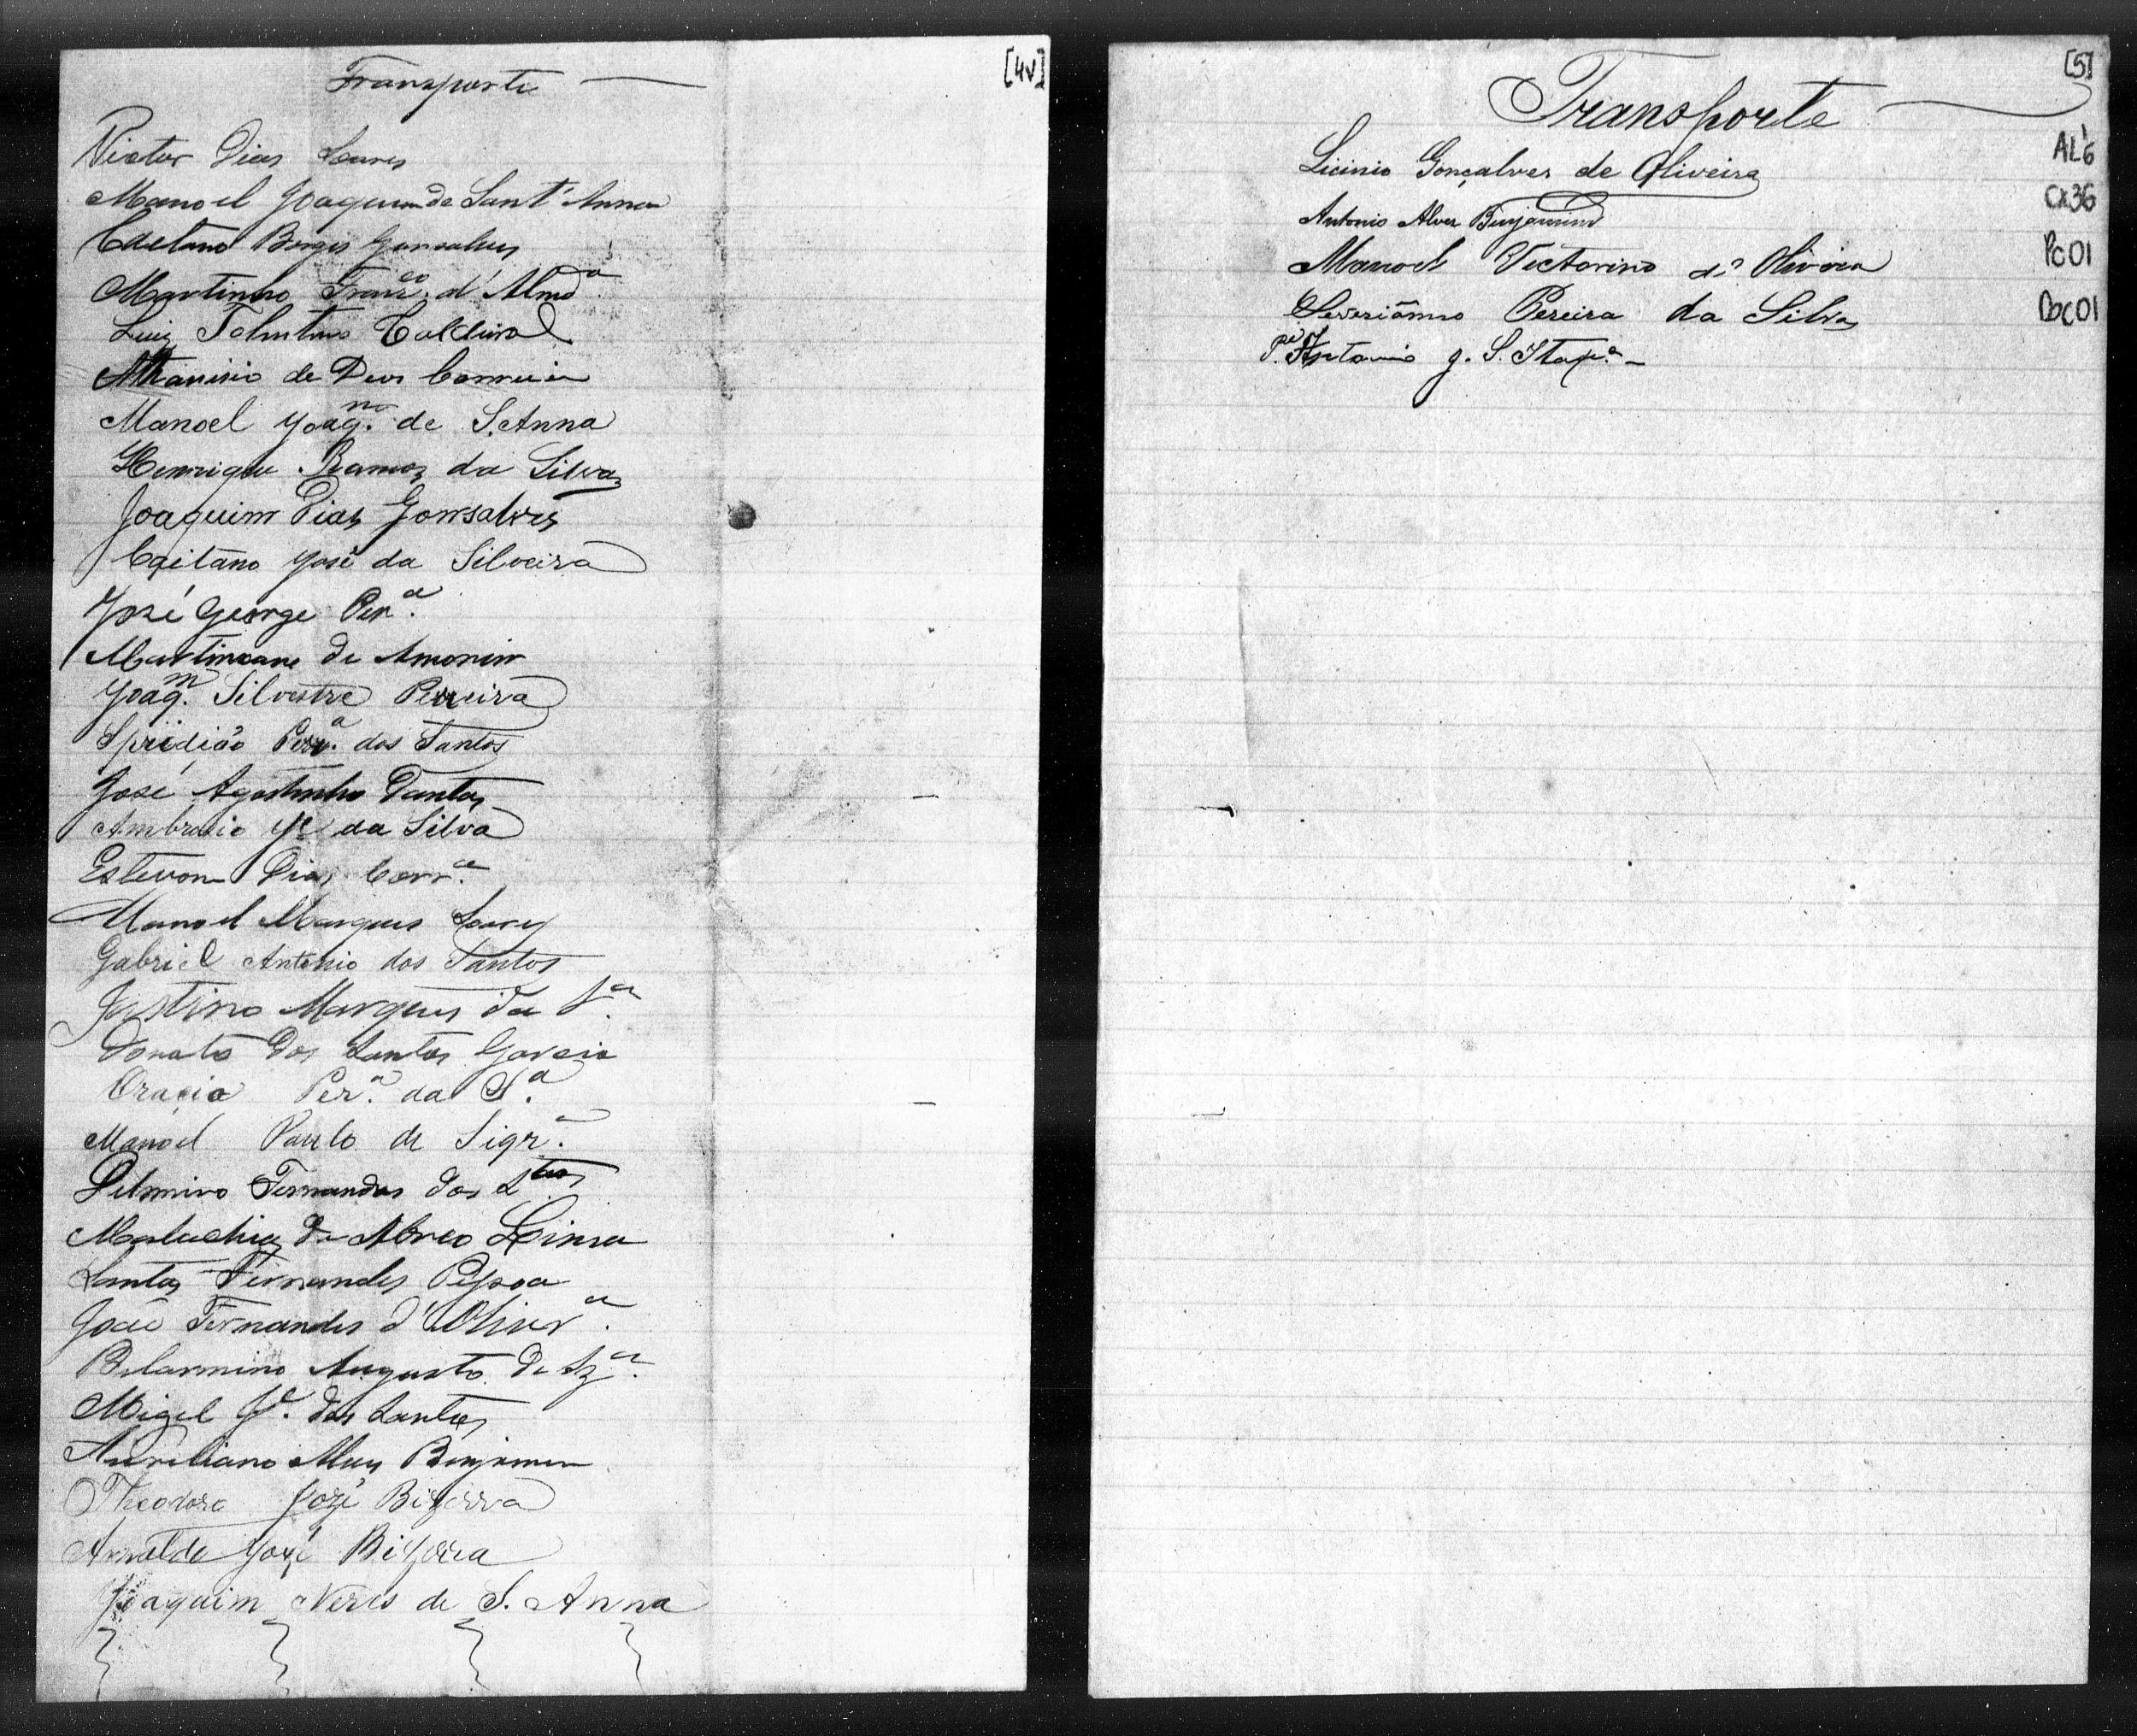 [4v]
Transporte
Victor Dias Soares
Manoel Joaquim de Sant'Anna
Caetano Borges Gonsalves
Martinho Franco. d'Almda
Luiz Caldeira
Athanisio de Deos Correia
Manoel Joaqm. de S. Anna
Henrique Ramos da Silva
Joaquim Dias Gonsalves
Caitano José da Silveira
José George Pera.
de Amorim
Joaqm. Silvestre Pereira
Spiidião Pera. dos Santos
José Agostinho Dantas
Ambrosio Je da Silva
Estevon Dias Corra.
Manoel Marques Soares
Gabriel Antonio dos Santos
Justino Marques da Sa.
Donato dos Santos Garcia
Oracio Pera. da Sa.
Manoel Paulo de Siqra.
Fernandes dos Stos
de Abreo Lima
Santos Fernandes Pessoa
João Fernandes d'Olivra.
Belarmino Augusto de Sza.
Migel Je. dos Santos
Aureliano Alves Benjamin
Theodoro José Bizerra
Arnaldo José Bizerra
Joaquim Neres de S. Anna
[5]
Transporte
AL6
CX36
Pc01
Doc01
Licinio Gonçalves de Oliveira
Antonio Alves Benjamim
Manoel Victorino de Oliveira
Severiânno Pereira da Silva
Antonio J. S.